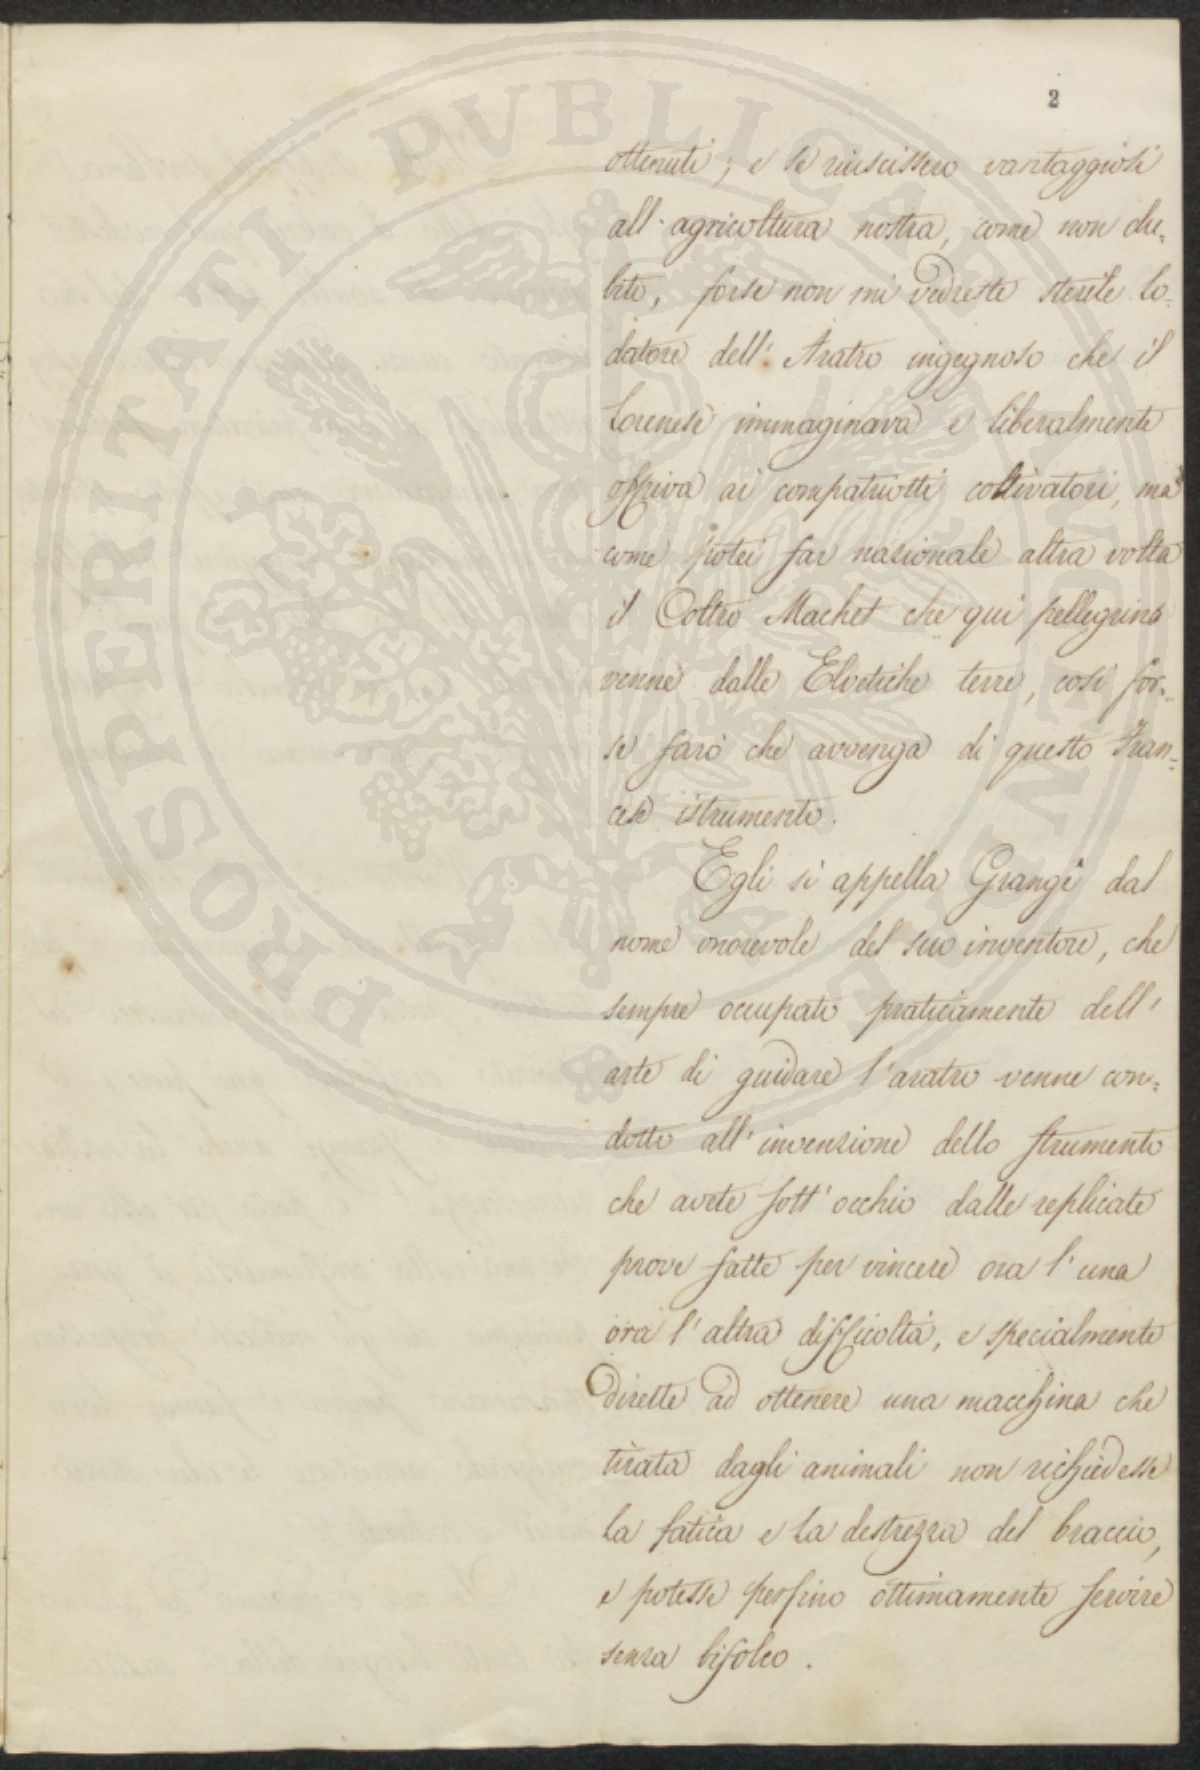 PROSPERITATI PVBLICAE AVGENDAE
2
ottenuti; e se riuscissero vantaggiosi
all'agricoltura nostra, come non du=
bito, forse non mi vedreste sterile lo=
datore dell'Aratro ingegnoso che il
Lorenese immaginava e liberalmente
offriva ai compatriotti coltivatori, ma
come potei far nazionale altra volta
il Coltro Machet che qui pellegrino
venne dalle Elvetiche terre, così for=
se farò che avvenga di questo Fran=
cese istrumento.
Egli si appella Grangé dal
nome onorevole del suo inventore, che
sempre occupato praticamente dell'
arte di guidare l'aratro venne con=
dotto all'invenzione dello strumento
che avete sott'occhio dalle replicate
prove fatte per vincere ora l'una
ora l'altra difficoltà, e specialmente
dirette ad ottenere una macchina che
tirata dagli animali non richiedesse
la fatica e la destrezza del braccio,
e potesse persino ottimamente servire
senza bifolco.